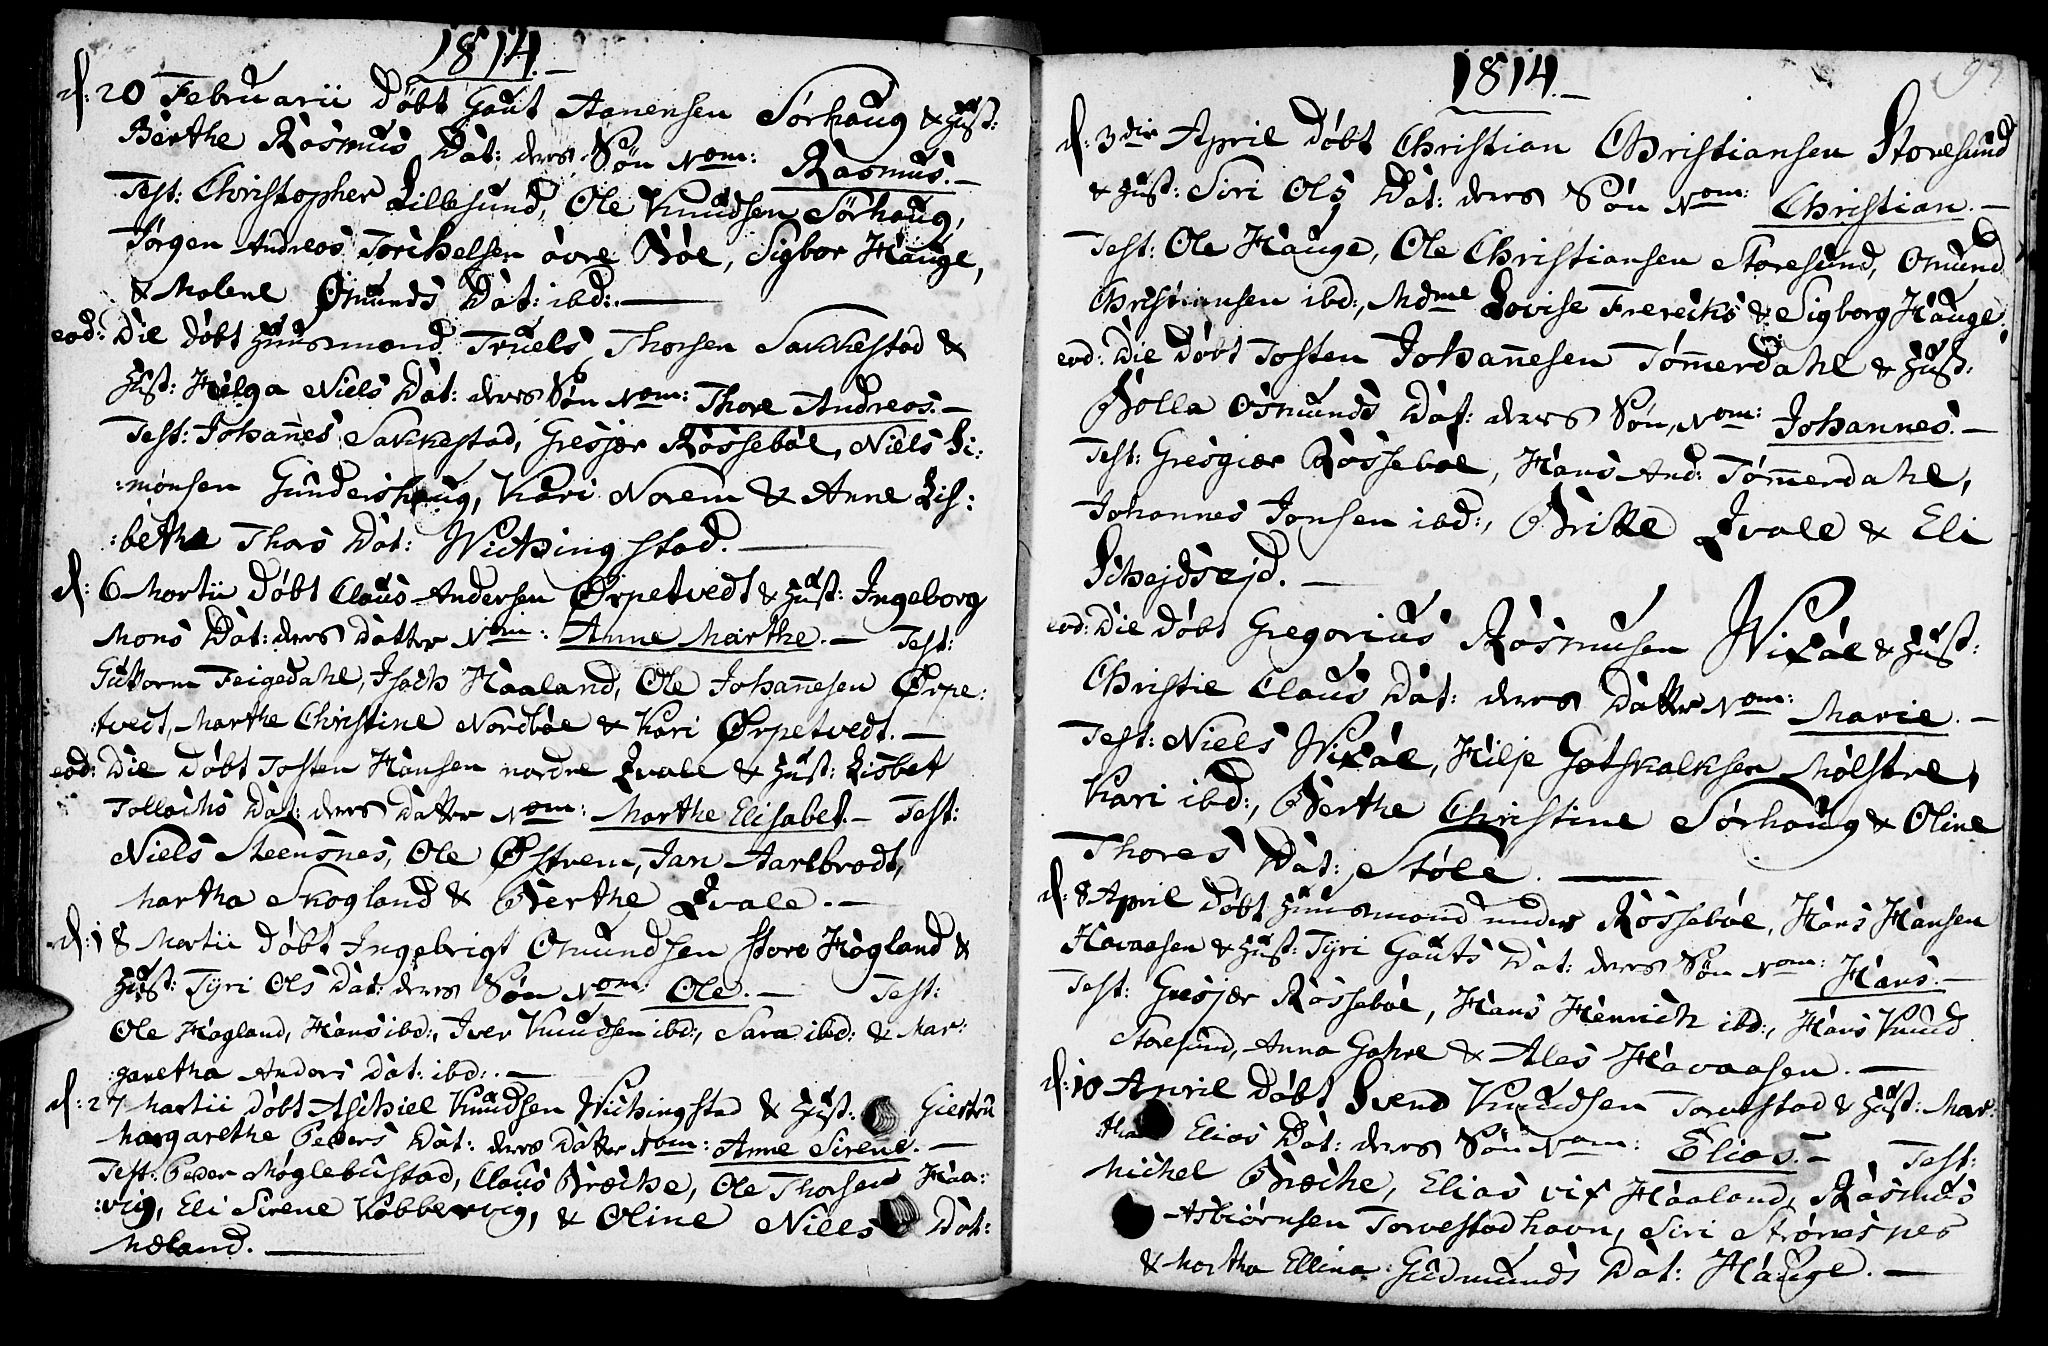 1814.-
d: 20 Februarii døbt Gaut Aanensen Sørhaug & Hust:
Berthe Rasmus Dat: deres Søn Nom: Rasmus.-
Test: Christopher Lillesund, Ole Knudsen Sørhaug,
Jørgen Andreas Torchelsen øvre Bøe, Sigbor Hauge,
& Malene Omunds Dat: ibd:.
eod: Die døbt Huusmand Truels Thorsen Sakkestad &
Hust: Helga Niels Dat: deres Søn Nom: Thore Andreas.-
Test: Johan̄es Sakkestad, Gresjer Røssebøe, Niels Si:
:monsen Gundershaug, Kari Norem & Anne Lis:
:betha Thors Dat: Wichingstad.
d: 6 Martii døbt Claus Andersen Ørpetvedt & Hust: Ingeborg
Mons Dat: deres Datter Nom: Anne Marthe.- Test:
Guttorm Teigedahl, Isach Haaland, Ole Johan̄esen Ørpe:
:tvedt, Marthe Christine Nordbøe & Kari Ørpetvedt.-
eod: Die døbt Tosten Hansen nordre Qvale & Hust: Lisbet
Tollachs Dat: deres Datter Nom: Marthe Elisabet.- Test:
Niels Steensnes, Ole Østrem, Jan Aarebrodt,
Martha Skogland & Berthe Qvale.-
d: 18 Martii døbt Ingebrigt Omundsen store Høgland &
Hust: Tyri Ols Dat: deres Søn Nom: Ole.- Test:
Ole Høgland, Hans ibd:, Iver Knudsen ibd:, Sara ibd: & Mar:
:garetha Anders Dat: ibd:.-
d: 27 Martii døbt Aschiel Knudsen Wichingstad & Hust: Giertru
Margarethe Peders Dat: deres Datter Nom: Anne Sirene.-
Test: Peder Møglebustad, Claus Bræche, Ole Thorsen Haa:
:vig, Eli Sirene Kobbervig, & Oline Niels Dat:
Mæland.
1814.-
d: 3die April døbt Christian Christiansen Storesund
& Hust: Siri Ols Dat: deres Søn Nom: Christian.-
Test: Ole Hauge, Ole Christiansen Storesund, Omund
Christiansen ibd:, Mdme Lovise Frerichs & Sigborg Hauge.
eod: Die døbt Tosten Johan̄esen Tøm̄erdahl & Hust:
Bolla Osmunds Dat: deres Søn, Nom: Johannes.-
Test: Gresgier Røssebøe, Hans And: Tøm̄erdahl,
Johannes Jonsen ibd:, Britte Qvale & Eli
Schejdsejd.-
eod: Die døbt Gregorius Rasmusen Wixøe & Hust:
Christie Claus Dat: deres Datter Nom: Marie.-
Test: Niels Wixøe, Hilje Gotskalksen Mølstre,
Kari ibd:, Berthe Christine Sørhaug & Oline
Thores Dat: Støle.
d: 8 April døbt Huusmand under Røssebøe, Hans Hansen
Havaasen & Hust: Tyri Gauts Dat: deres Søn Nom: Hans.-
Test: Gresjer Røssebøe, Hans Henrich ibd:, Hans Knud
Storesund, Anna Gahre & Ales Havaasen.-
d: 10 April døbt Svend Knudsen Torvestad & Hust: Mar:
tha Elias Dat: deres Søn Nom: Elias.- Test:
Michel Bræche, Elias vix Haaland, Rasmus
Asbiørnsen Torvestadhavn, Siri Strønesnes
& Martha Ellina Gudmunds Dat: Hauge.-